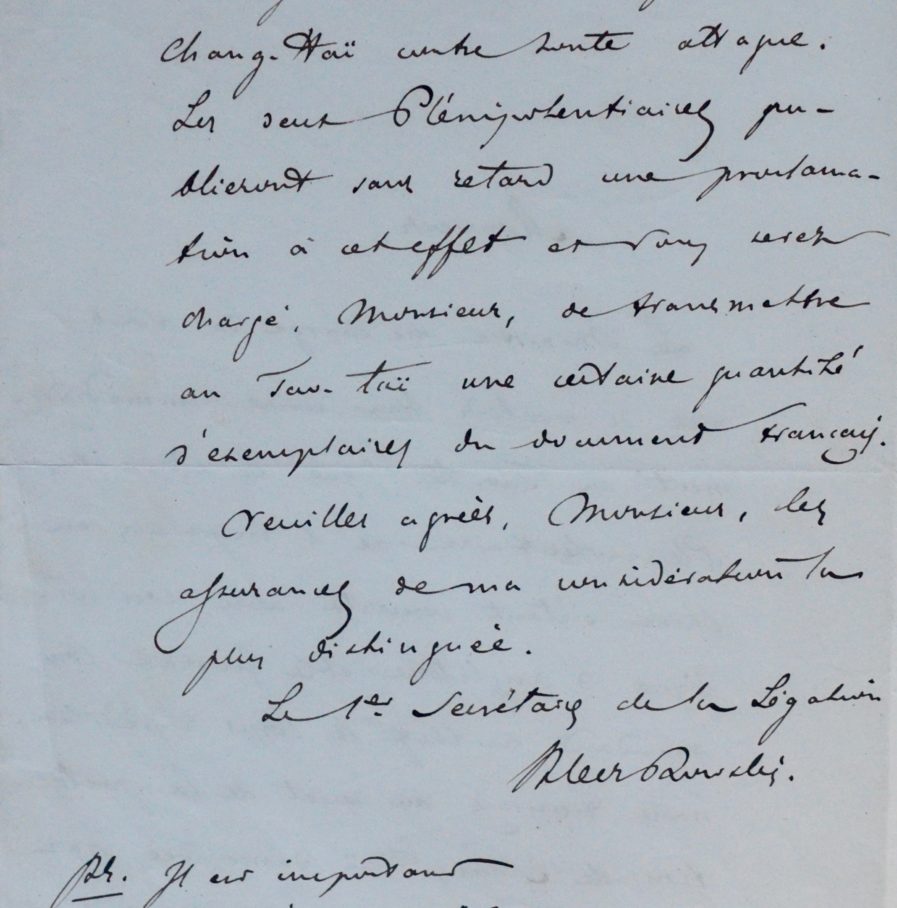 Chang-Haï contre toute attaque.
Les deux Plénipotentiaires pu-
blieront sans retard une proclama-
tion à cet effet et vous serez
chargé, Monsieur, de transmettre
au Tao-taï une certaine quantité
d'exemplaires du document français.
Veuillez agréer, Monsieur, les
assurances de ma considération la
plus distinguée.
Le 1er Secrétaire de la Légation
Kleczkowski.
Ps. Il est important